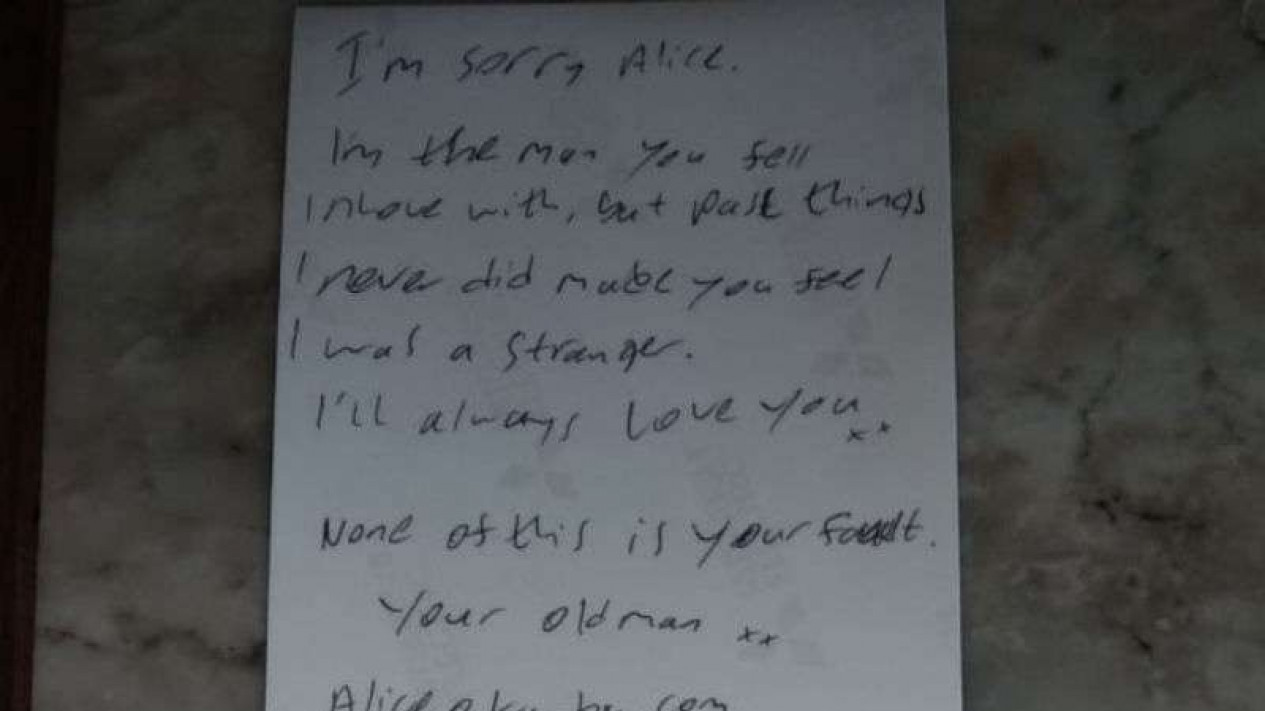 I'm sorry Alice.
I'm the man you fell
in love with, but past things
I never did make you feel
I was a stranger.
I'll always love you xx
None of this is your fault.
Your old man xx
Alice